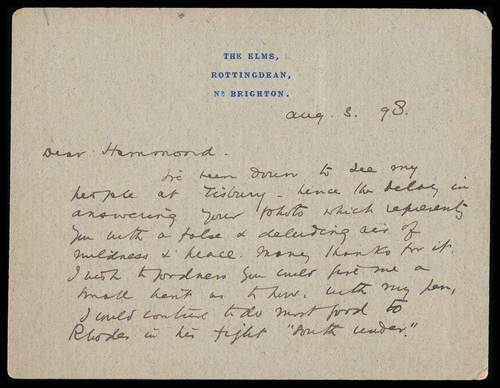 THE ELMS,
ROTTINGDEAN,
Nr BRIGHTON.
Aug. 3. 98.
Dear Hammond.
I've been down to see my
people at Tisbury - hence the delay in
answering your photo which represents
you with a false & deluding air of
mildness & peace. Many thanks for it.
I wish to goodness you could give me a
small hint as to how, with my pen,
I could contrive to do most good to
Rhodes in his fight "down under."